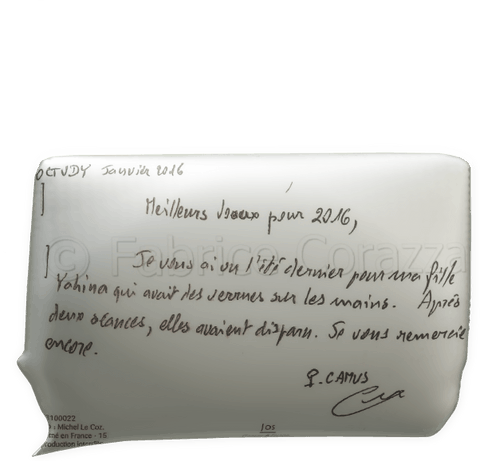 LOCTUDY Janvier 2016
Meilleurs voeux pour 2016,
© Fabrice Corazza
Je vous ai vu l'été dernier pour ma fille
Yahina qui avait des verrues sur les mains. Après
deux séances, elles avaient disparu. Je vous remercie
encore.
CAMUS
100022
: Michel Le Coz.
mé en France - 15
oduction interdite